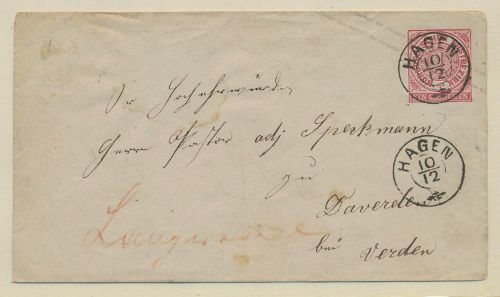 HAGEN
10
12
Sr Hochehrwürden
Herrn Pastor adj Speckmann
HAGEN
10
12
zu
Daverden
bei
Verden